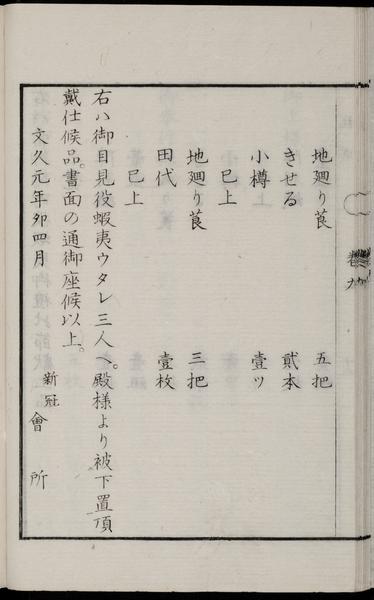 地廻り莨　五把
きせる　貳本
小樽　壹ツ
已上
地廻り莨　三把
田代　壹枚
已上
右ハ御目見役蝦夷ウタレ三人へ。殿様より被下置頂
戴仕候品。書面の通御座候以上。
文久元年夘四月
新冠 會所